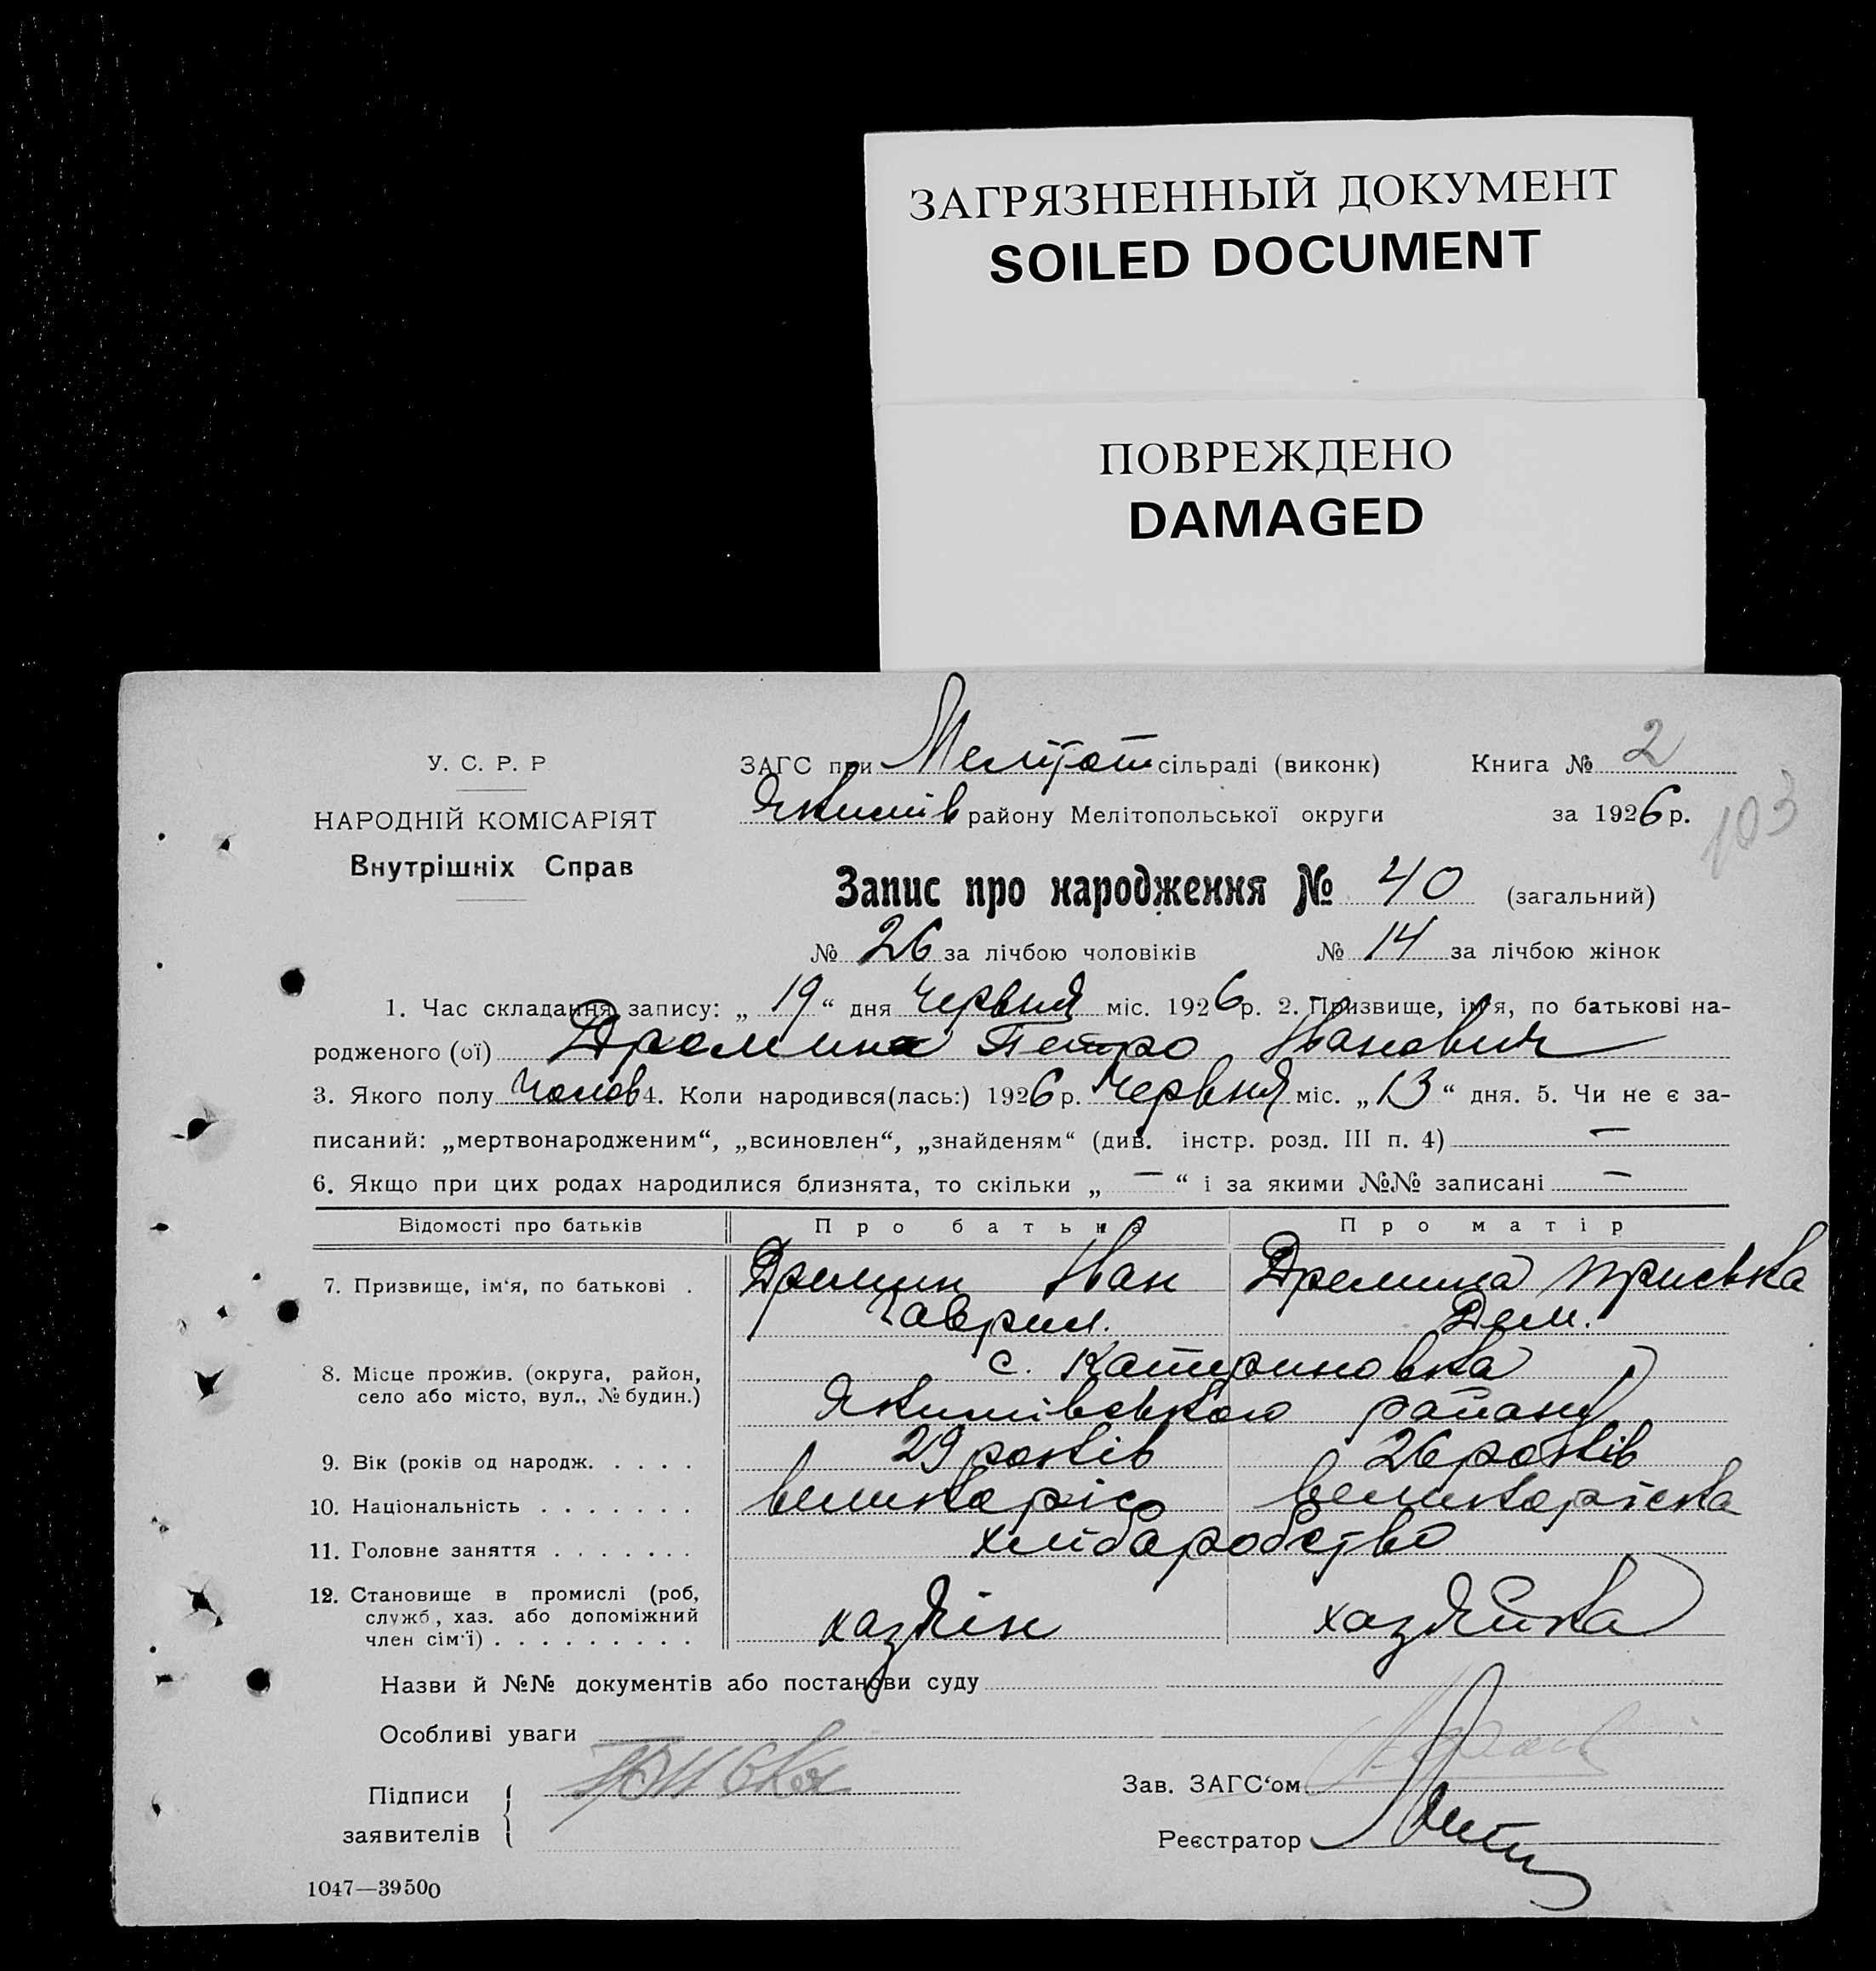 ЗАГРЯЗНЕННЫЙ ДОКУМЕНТ
SOILED DOCUMENT
ПОВРЕЖДЕНО
DAMAGED
У. С. Р. Р
НАРОДНІЙ КОМІСАРІЯТ
Внутрішніх Справ
ЗАГС при Меліtoп сільраді (виконк)
Книга № 2
Якимів району Мелітопольської округи
за 1926 р.
103
Запис про народження № 40 (загальний)
№ 26 за лічбою чоловіків № 14 за лічбою жінок
1. Час складання запису: „ 19 “ дня Червня міс. 1926 р. 2. Призвище, ім'я, по батькові на-
родженого (ої) Дремина Петро Іванович
3. Якого полу Чолов 4. Коли народився(лась:) 1926 р. Червня міс. „ 13 “ дня. 5. Чи не є за-
писаний: „мертвонародженим“, „всиновлен“, „знайденям“ (див. інстр. розд. III п. 4) —
6. Якщо при цих родах народилися близнята, то скільки „ — “ і за якими №№ записані —
Відомості про батьків Про батька Про матір
7. Призвище, ім‘я, по батькові . Дремин Іван Дремина Приська
Гаврил. Дем.
8. Місце прожив. (округа, район, с. Катериновка
село або місто, вул., № будин.) Якимівського району
9. Вік (років од народж. . . . . 29 років 26 років
10. Національність . . . . . . . великорос великоріска
11. Головне заняття . . . . . . . хліборобство
12. Становище в промислі (роб,
служб., хаз. або допоміжний
член сім‘ї) . . . . . . . . . хазяїн хазяйка
Назви й №№ документів або постанови суду
Особливі уваги
Підписи
заявителів
Зав. ЗАГС‘ом
Реєстратор
1047—39500